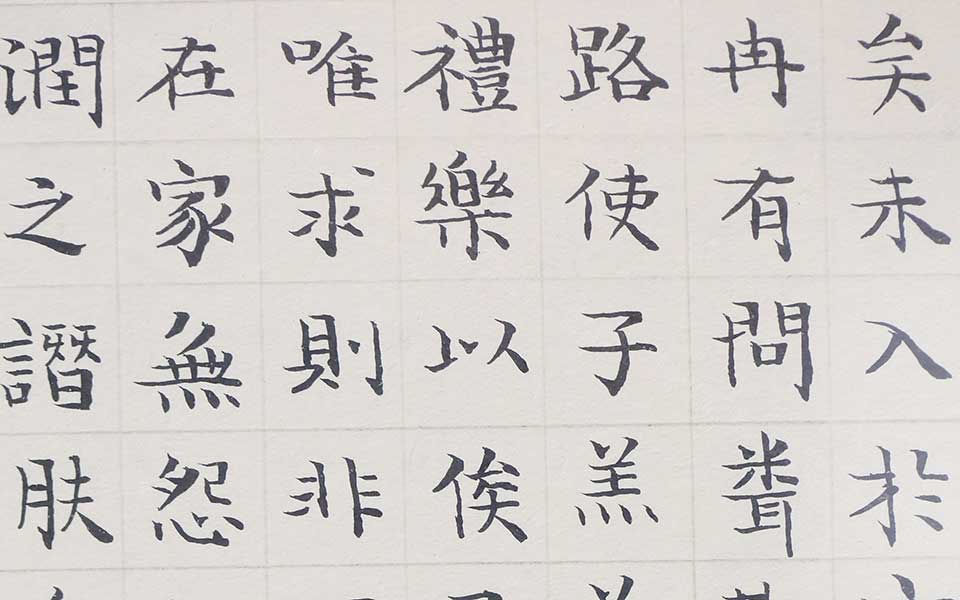 矣未入於
冉有問
路使子羔
禮樂以俟
唯求則非
在家無怨
潤之譖肤